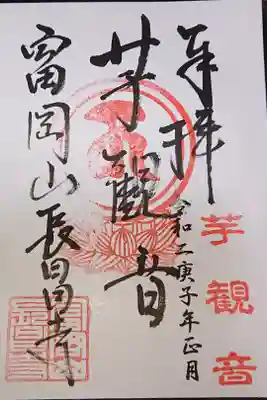 奉拝
芋観音
令和二庚子年正月
芋觀音
富岡山長昌寺